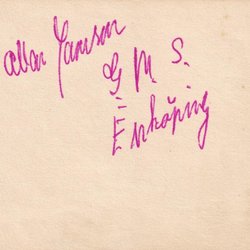 Allan Jansson
G M S.
Enköping